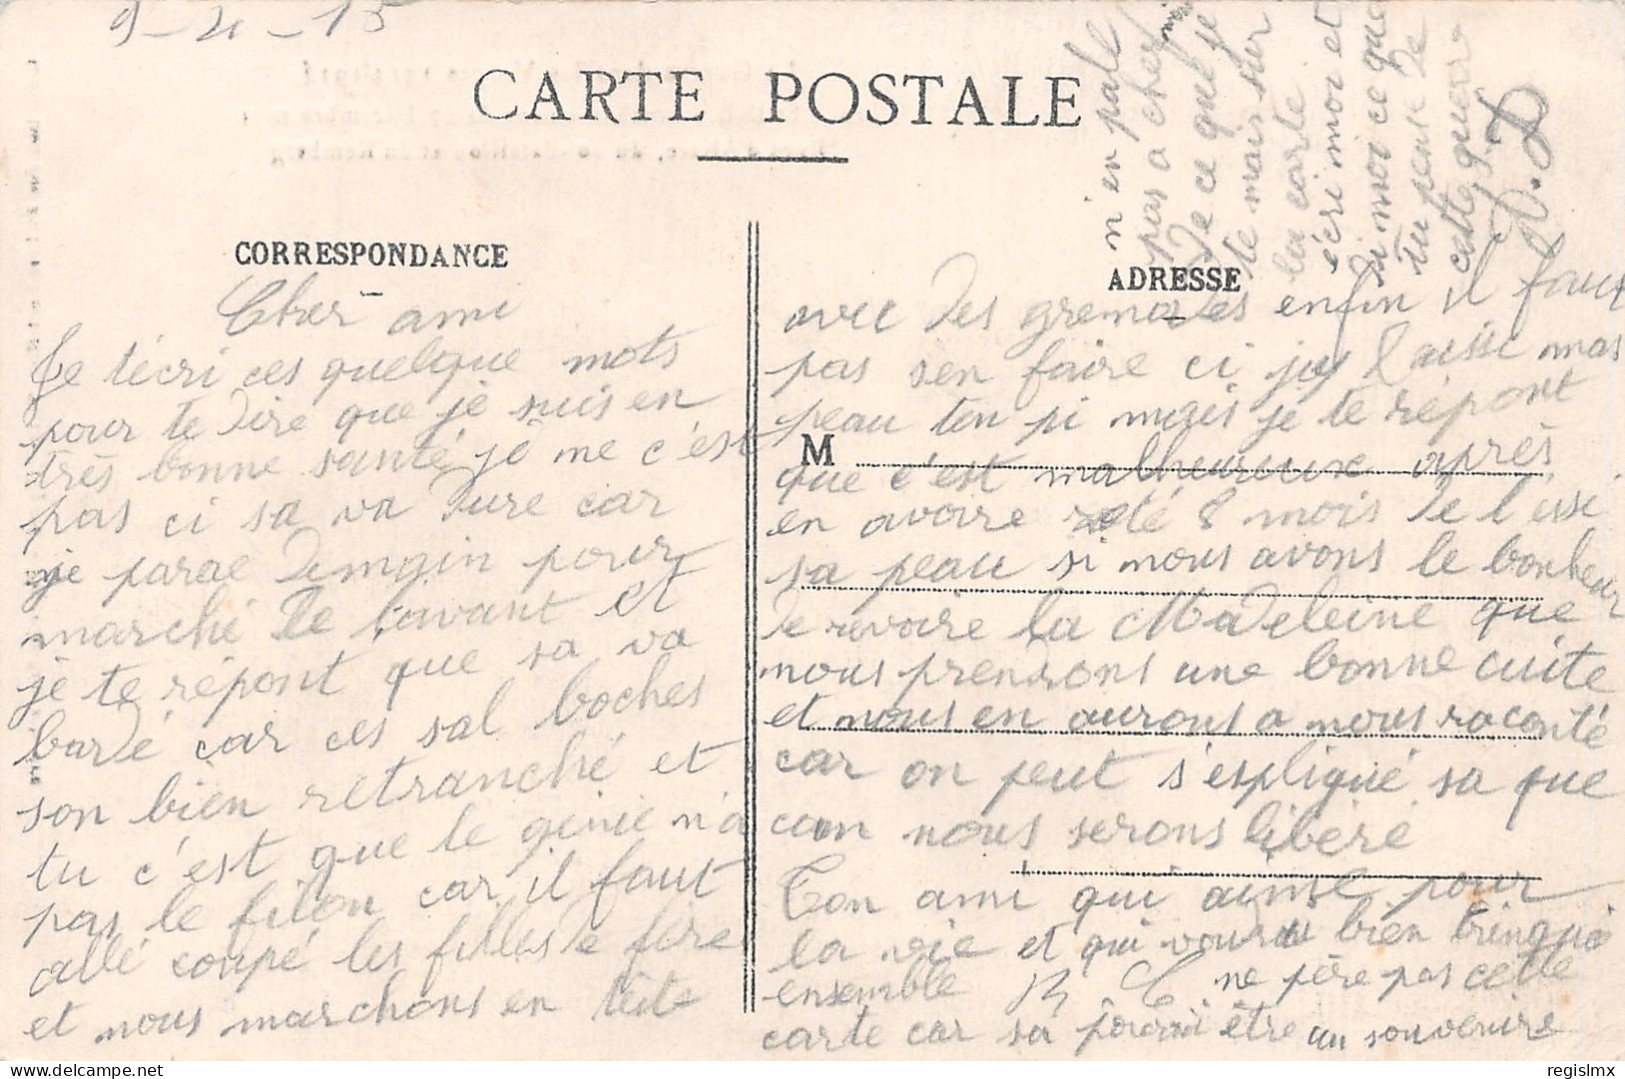 9-4-15
CARTE POSTALE
CORRESPONDANCE
Cher ami
Je técri ces quelque mots
pour te dire que je suis en
très bonne santé je me c'est
pas ci sa va dure car
je parae demain pour
marché de l'avant et
je te répont que sa va
bardé car ces sal boches
son bien retranché et
tu c'est que le génie n'a
pas le filon car il faut
allé coupé les filles de fere
et nous marchons en tête
ADRESSE
M
avec des grenades enfin il faut
pas s'en faire ci j'y laisse mas
peau ten pi mais je te répont
que c'est malheureux après
en avoire reté 8 mois de l
sa peau si nous avons le bonheur
de revoire la Madeleine que
nous prensrons une bonne cuite
et nous en aurons a nous raconté
car on peut s'espliqué sa que
can nous serons libéré
Ton ami qui aime pour
la vie et qui voudrai bien trinqué
ensemble ne père pas cette
carte car sa pourai être un souvenire
n'en parle
pas a cher
de ce que je
te mais sur
la carte
écri moi et
di moi ce que
tu pense de
cette guerre
regislmx